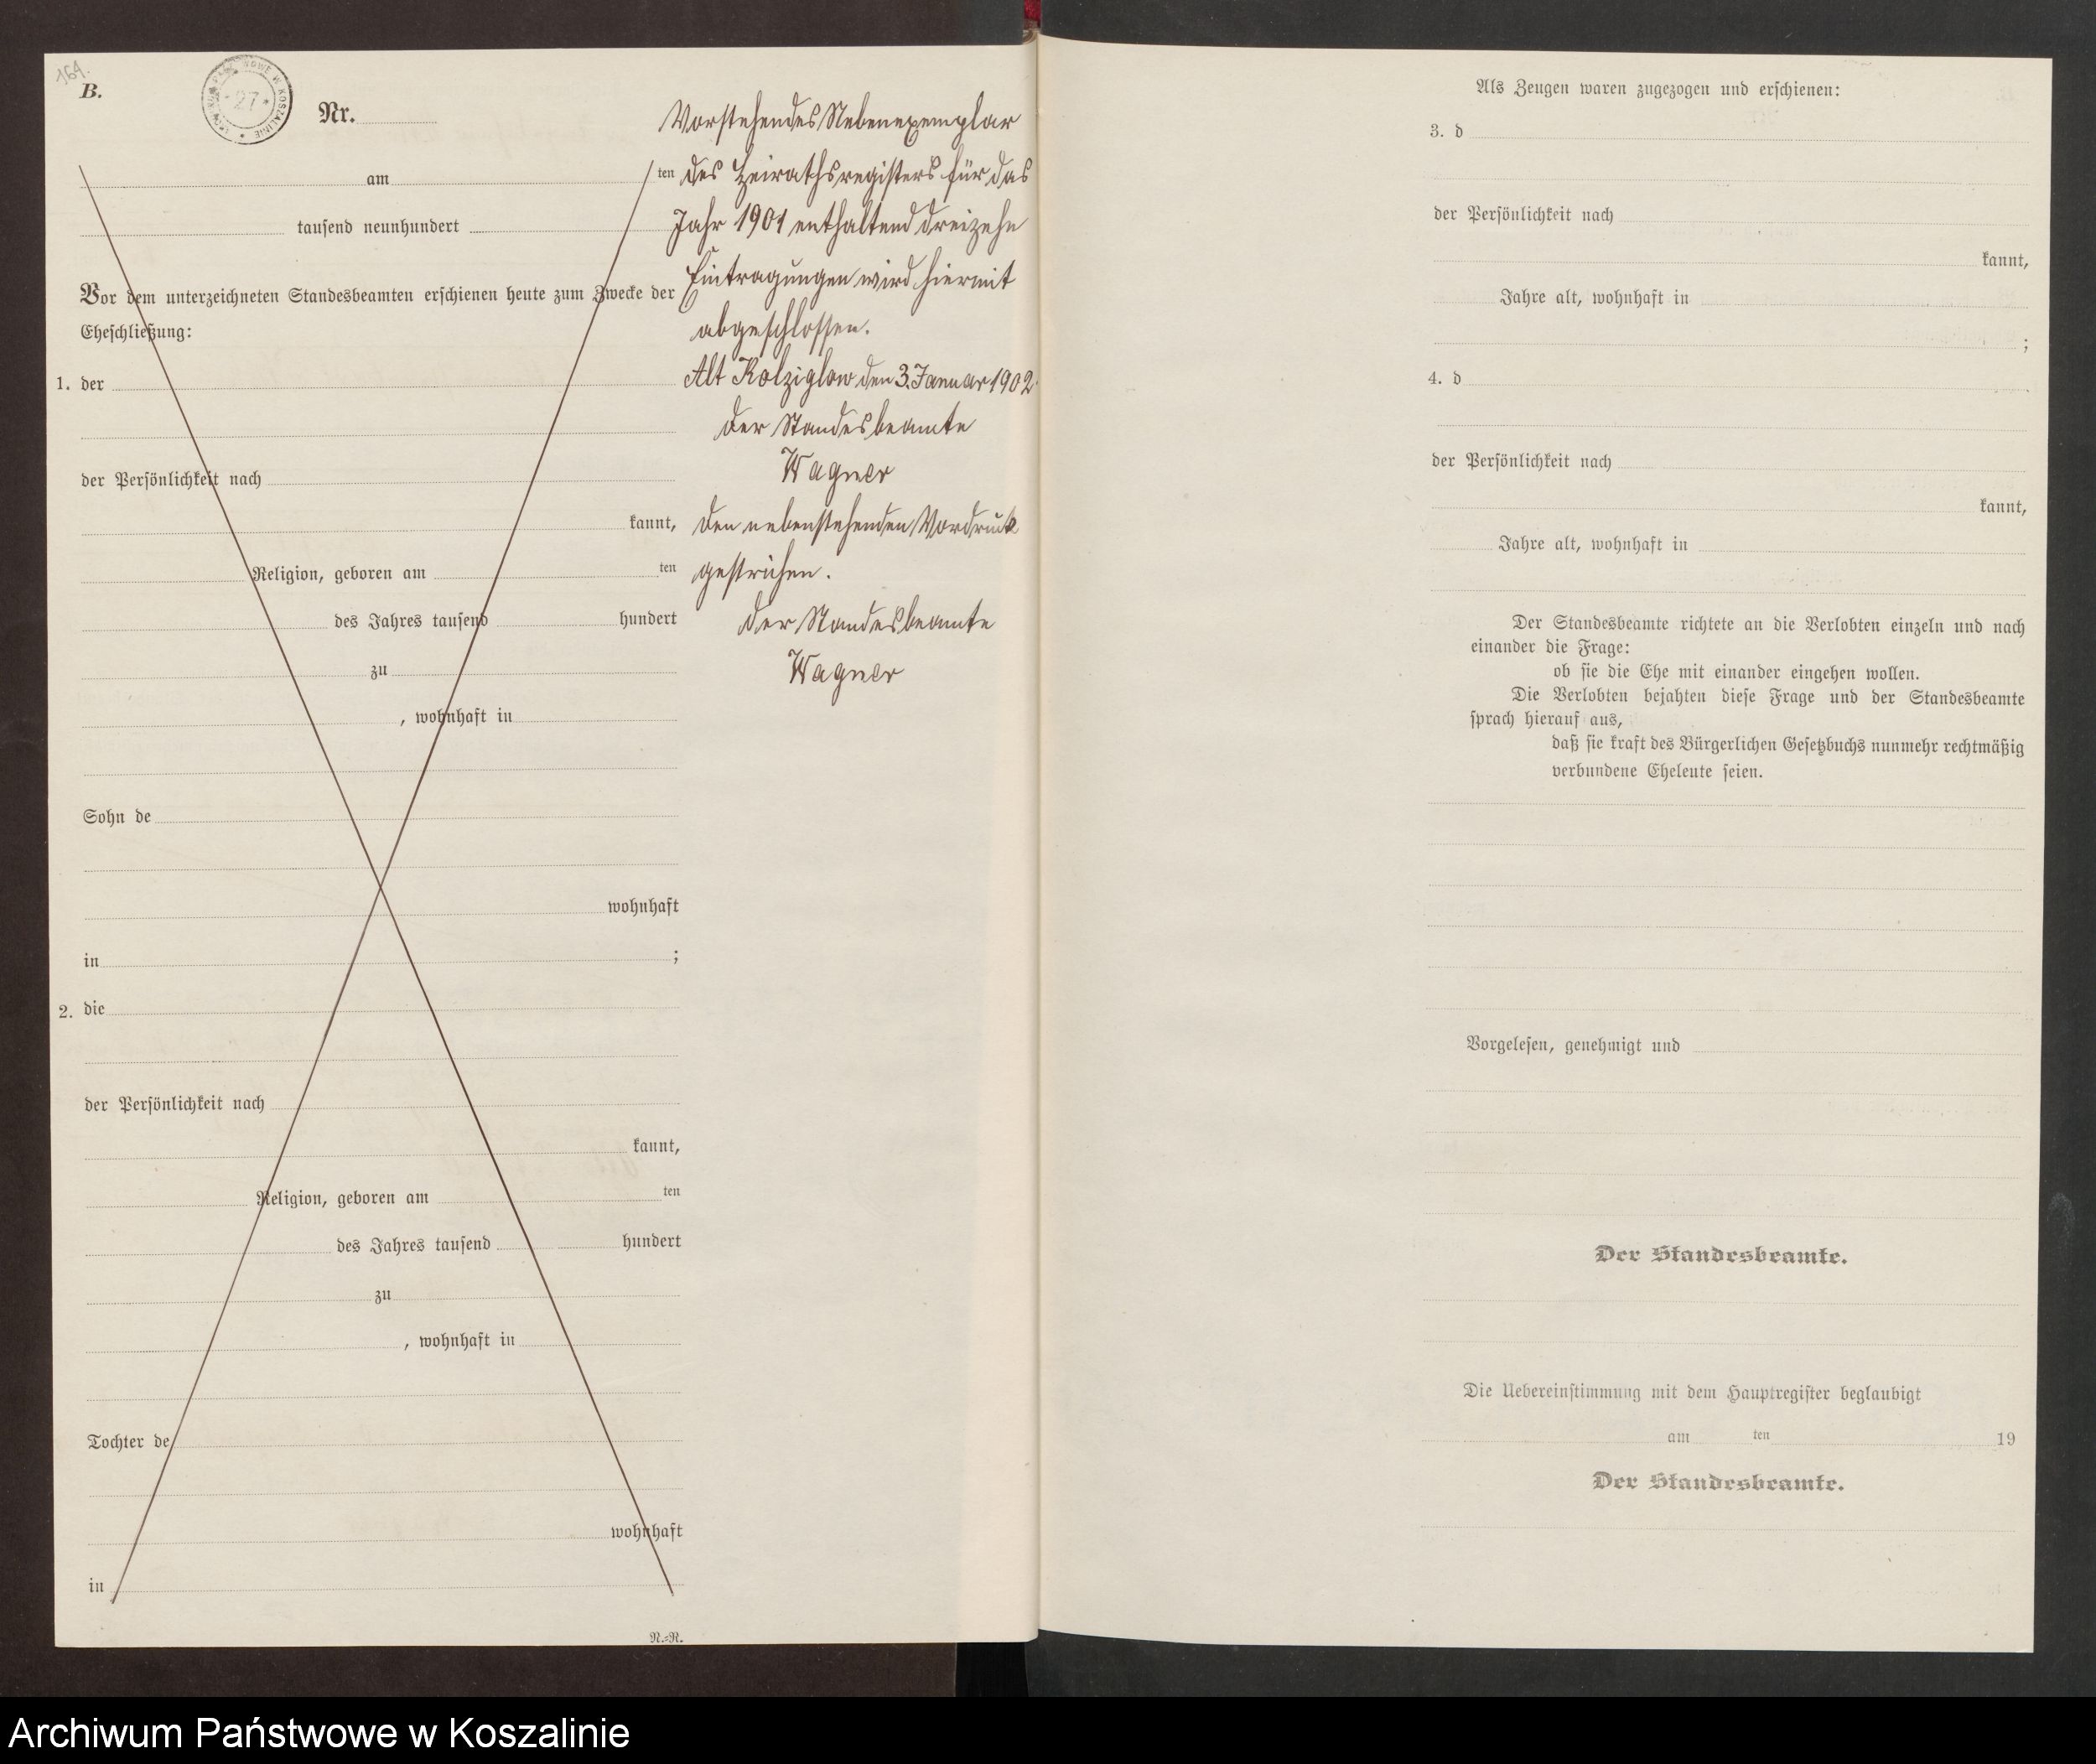 164.
B.
ARCHIWUM PAŃSTWOWE W KOSZALINIE
27
Nr.
am ten
tausend neunhundert
Vor dem unterzeichneten Standesbeamten erschienen heute zum Zwecke der
Eheschließung:
1. der
der Persönlichkeit nach
kannt,
Religion, geboren am ten
des Jahres tausend hundert
zu
, wohnhaft in
Sohn de
wohnhaft
in ;
2. die
der Persönlichkeit nach
kannt,
Religion, geboren am ten
des Jahres tausend hundert
zu
, wohnhaft in
Tochter de
wohnhaft
in
N.-R.
Vorstehendes Nebenexemplar
des Heirathsregisters für das
Jahr 1901 enthaltend dreizehn
Eintragungen wird hiermit
abgeschlossen.
Alt Kolziglow den 3. Januar 1902.
Der Standesbeamte
Wagner
Den nebenstehenden Vordruck
gestrichen.
Der Standesbeamte
Wagner
Als Zeugen waren zugezogen und erschienen:
3. d
der Persönlichkeit nach
kannt,
Jahre alt, wohnhaft in
;
4. d
der Persönlichkeit nach
kannt,
Jahre alt, wohnhaft in
Der Standesbeamte richtete an die Verlobten einzeln und nach
einander die Frage:
ob sie die Ehe mit einander eingehen wollen.
Die Verlobten bejahten diese Frage und der Standesbeamte
sprach hierauf aus,
daß sie kraft des Bürgerlichen Gesetzbuchs nunmehr rechtmäßig
verbundene Eheleute seien.
Vorgelesen, genehmigt und
Der Standesbeamte.
Die Uebereinstimmung mit dem Hauptregister beglaubigt
am ten 19
Der Standesbeamte.
Archiwum Państwowe w Koszalinie